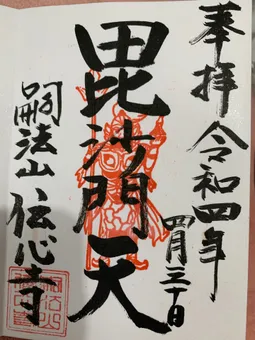 奉拝 令和四年
四月三十日
毘沙門天
嗣法山 伝心寺